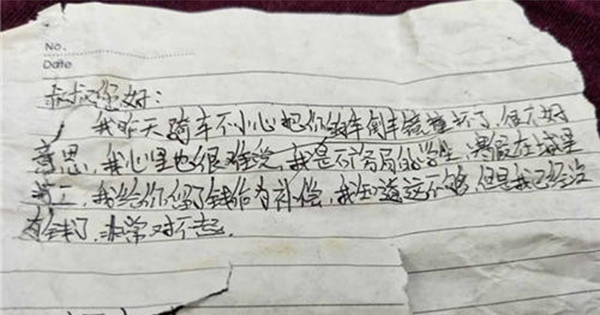 No.
Date
叔叔您好:
我昨天骑车不小心把你的车倒车镜撞坏了,很不好
意思,我心里也很难受,我是的学生,寒假在城里
打工,我给你留了钱作为补偿,我知道远不够,但是我已经没
有钱了,非常对不起.